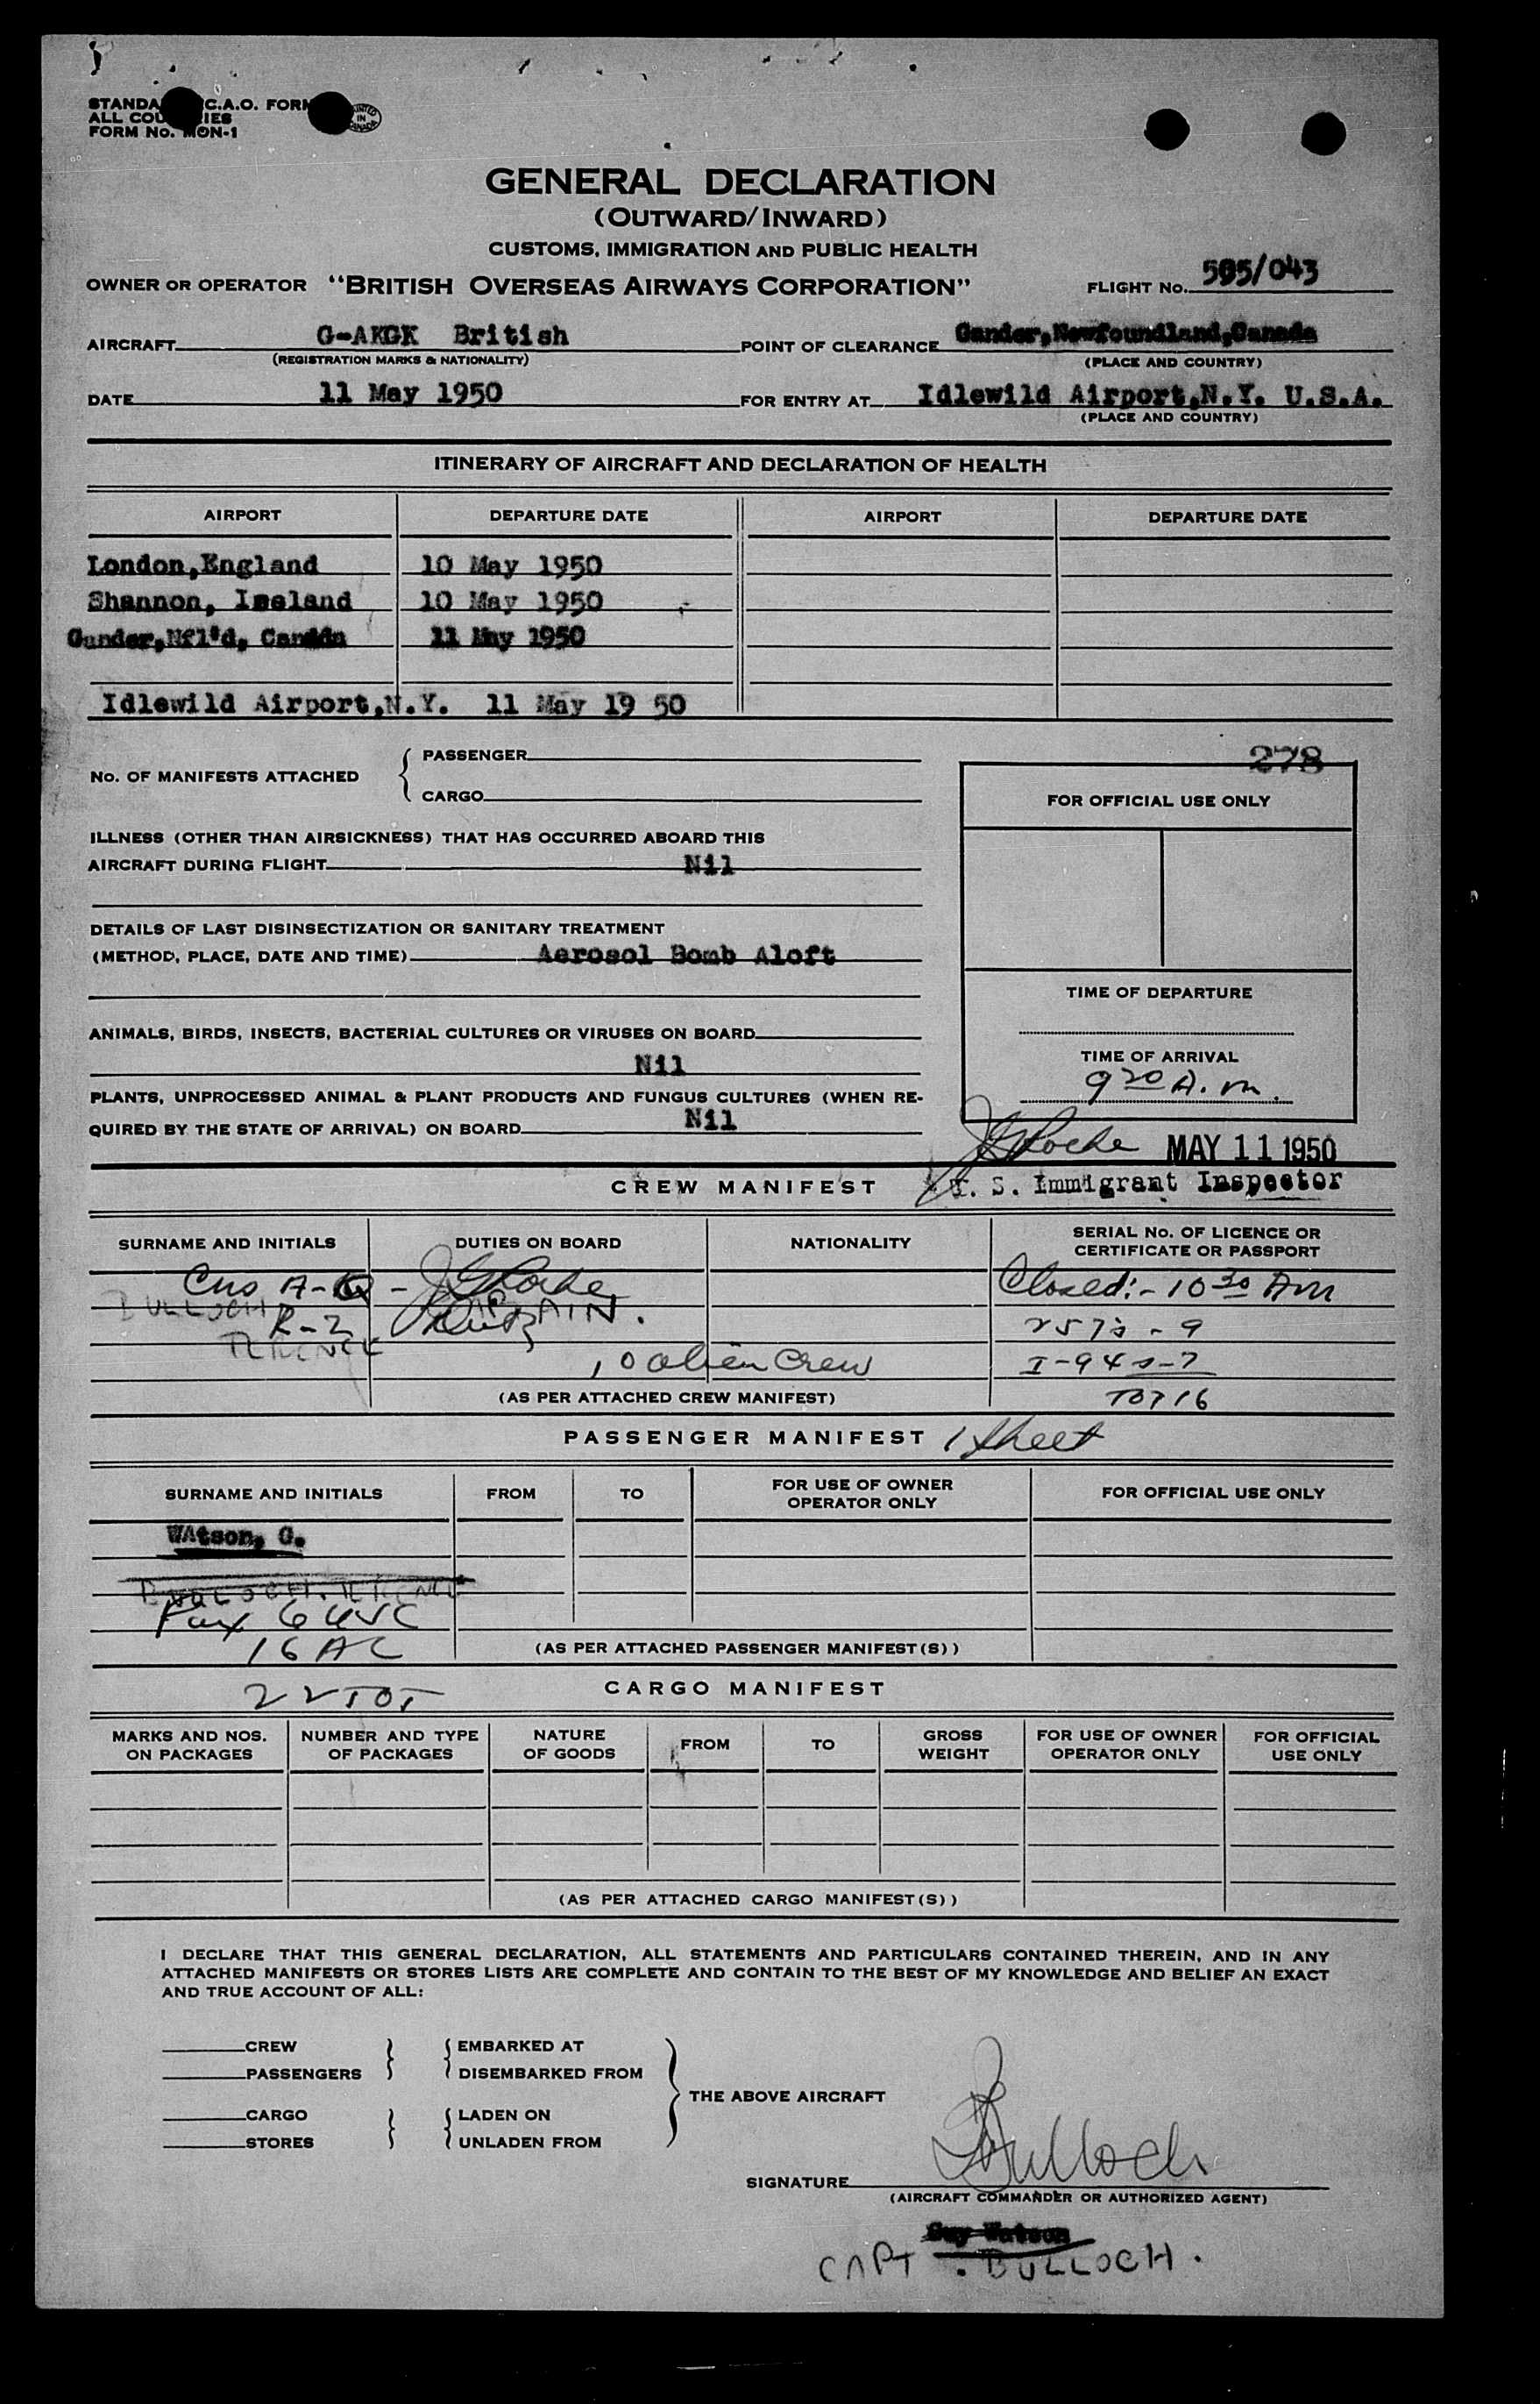 STANDA C.A.O. FORM
ALL COU IES
FORM No. MON-1
PRINTED IN CANADA
GENERAL DECLARATION
(OUTWARD/INWARD)
CUSTOMS, IMMIGRATION AND PUBLIC HEALTH
OWNER OR OPERATOR "BRITISH OVERSEAS AIRWAYS CORPORATION" FLIGHT No. 505/043
AIRCRAFT G-AKGK British POINT OF CLEARANCE Gander, Newfoundland, Canada
(REGISTRATION MARKS & NATIONALITY) (PLACE AND COUNTRY)
DATE 11 May 1950 FOR ENTRY AT Idlewild Airport,N.Y. U.S.A.
(PLACE AND COUNTRY)
ITINERARY OF AIRCRAFT AND DECLARATION OF HEALTH
AIRPORT DEPARTURE DATE AIRPORT DEPARTURE DATE
London,England 10 May 1950
Shannon, Ireland 10 May 1950
Gander,Nfl'd, Canada 11 May 1950
Idlewild Airport,N.Y. 11 May 19 50
No. OF MANIFESTS ATTACHED { PASSENGER
CARGO
278
FOR OFFICIAL USE ONLY
ILLNESS (OTHER THAN AIRSICKNESS) THAT HAS OCCURRED ABOARD THIS
AIRCRAFT DURING FLIGHT Nil
DETAILS OF LAST DISINSECTIZATION OR SANITARY TREATMENT
(METHOD, PLACE, DATE AND TIME) Aerosol Bomb Aloft
TIME OF DEPARTURE
ANIMALS, BIRDS, INSECTS, BACTERIAL CULTURES OR VIRUSES ON BOARD
Nil
TIME OF ARRIVAL
9 20 A.m.
PLANTS, UNPROCESSED ANIMAL & PLANT PRODUCTS AND FUNGUS CULTURES (WHEN RE-
QUIRED BY THE STATE OF ARRIVAL) ON BOARD Nil
JGRoche MAY 11 1950
U. S. Immigrant Inspector
CREW MANIFEST
SURNAME AND INITIALS DUTIES ON BOARD NATIONALITY SERIAL No. OF LICENCE OR
CERTIFICATE OR PASSPORT
A- - JGRoche Closed:- 10 30 Am
BULLOCH R-2 CAPTAIN.
TERENCE
257 - 9
10 alien Crew I-94
(AS PER ATTACHED CREW MANIFEST) 16
PASSENGER MANIFEST 1 sheet
SURNAME AND INITIALS FROM TO FOR USE OF OWNER
OPERATOR ONLY FOR OFFICIAL USE ONLY
WAtson, G.
BULLOCH. TERENCE
Pax 6 USC
16 AC (AS PER ATTACHED PASSENGER MANIFEST(S))
22 TOT CARGO MANIFEST
MARKS AND NOS.
ON PACKAGES NUMBER AND TYPE
OF PACKAGES NATURE
OF GOODS FROM TO GROSS
WEIGHT FOR USE OF OWNER
OPERATOR ONLY FOR OFFICIAL
USE ONLY
(AS PER ATTACHED CARGO MANIFEST(S))
I DECLARE THAT THIS GENERAL DECLARATION, ALL STATEMENTS AND PARTICULARS CONTAINED THEREIN, AND IN ANY
ATTACHED MANIFESTS OR STORES LISTS ARE COMPLETE AND CONTAIN TO THE BEST OF MY KNOWLEDGE AND BELIEF AN EXACT
AND TRUE ACCOUNT OF ALL:
CREW EMBARKED AT
PASSENGERS DISEMBARKED FROM
THE ABOVE AIRCRAFT
CARGO LADEN ON
STORES UNLADEN FROM
SIGNATURE Bulloch
(AIRCRAFT COMMANDER OR AUTHORIZED AGENT)
Guy Watson
CAPT . BULLOCH.